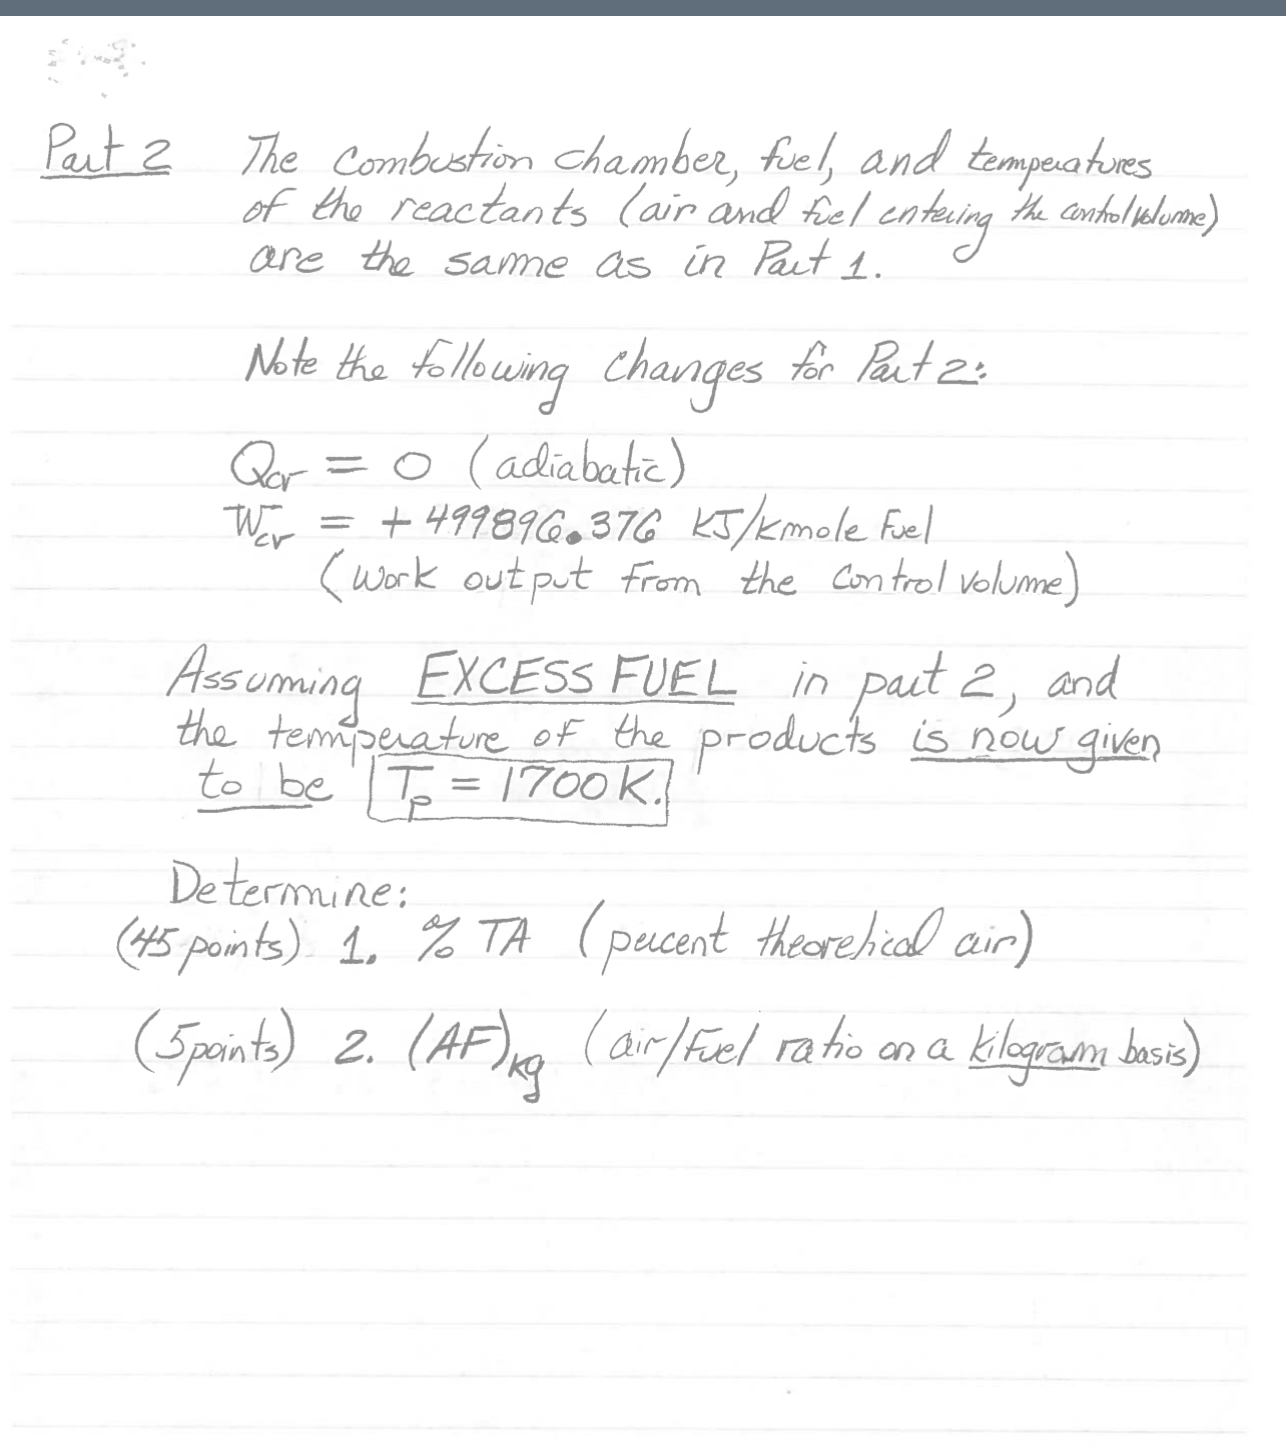 Part 2 The combustion chamber, fuel, and temperatures
of the reactants (air and fuel entering the control volume)
are the same as in Part 1.
Note the following changes for Part 2:
Qcv = 0 (adiabatic)
Wcv = +499896.376 KJ/kmole fuel
(work output from the control volume)
Assuming EXCESS FUEL in part 2, and
the temperature of the products is now given
to be Tp = 1700 K.
Determine:
(45 points) 1. % TA (percent theoretical air)
(5 points) 2. (AF)kg (air/fuel ratio on a kilogram basis)